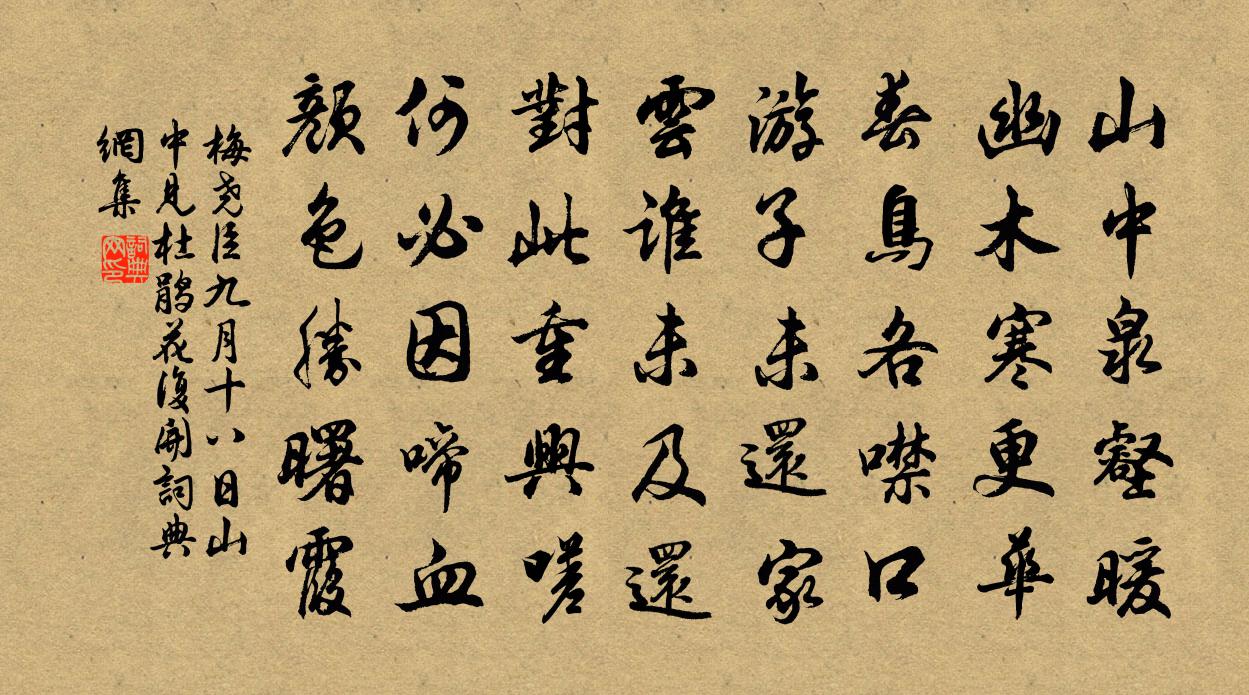 山中泉壑暖
幽木寒更華
春鳥各噤口
游子未還家
雲誰未及還
對此重興嗟
何必因啼血
顏色勝曙霞
梅尧臣九月十八日山
中見杜鹃花復開詞典
網集
詞典网印